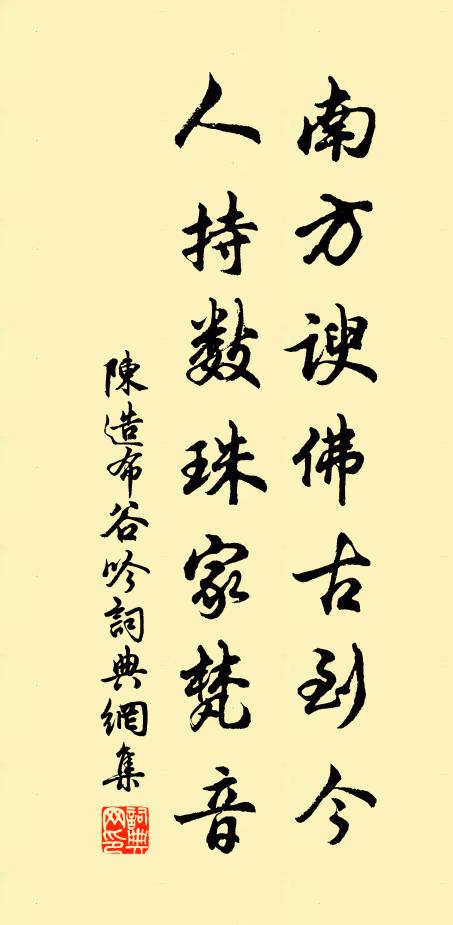 南方諛佛古到今
人持數珠家梵音
陳造布谷吟詞典網集
詞典网印